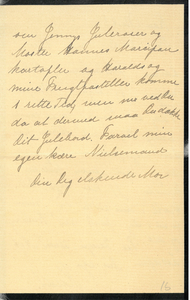 som Jennys Julerasen og
Moster Hannes Marcipan
kartofler og Haralds og
mine Frugtpastiller komme
i rette Tid, men nu ved Du
da at dermed maa Du dække
dit Julebord. Farvel min
egen kære Nielsemand
Din Dig elskende Mor
16